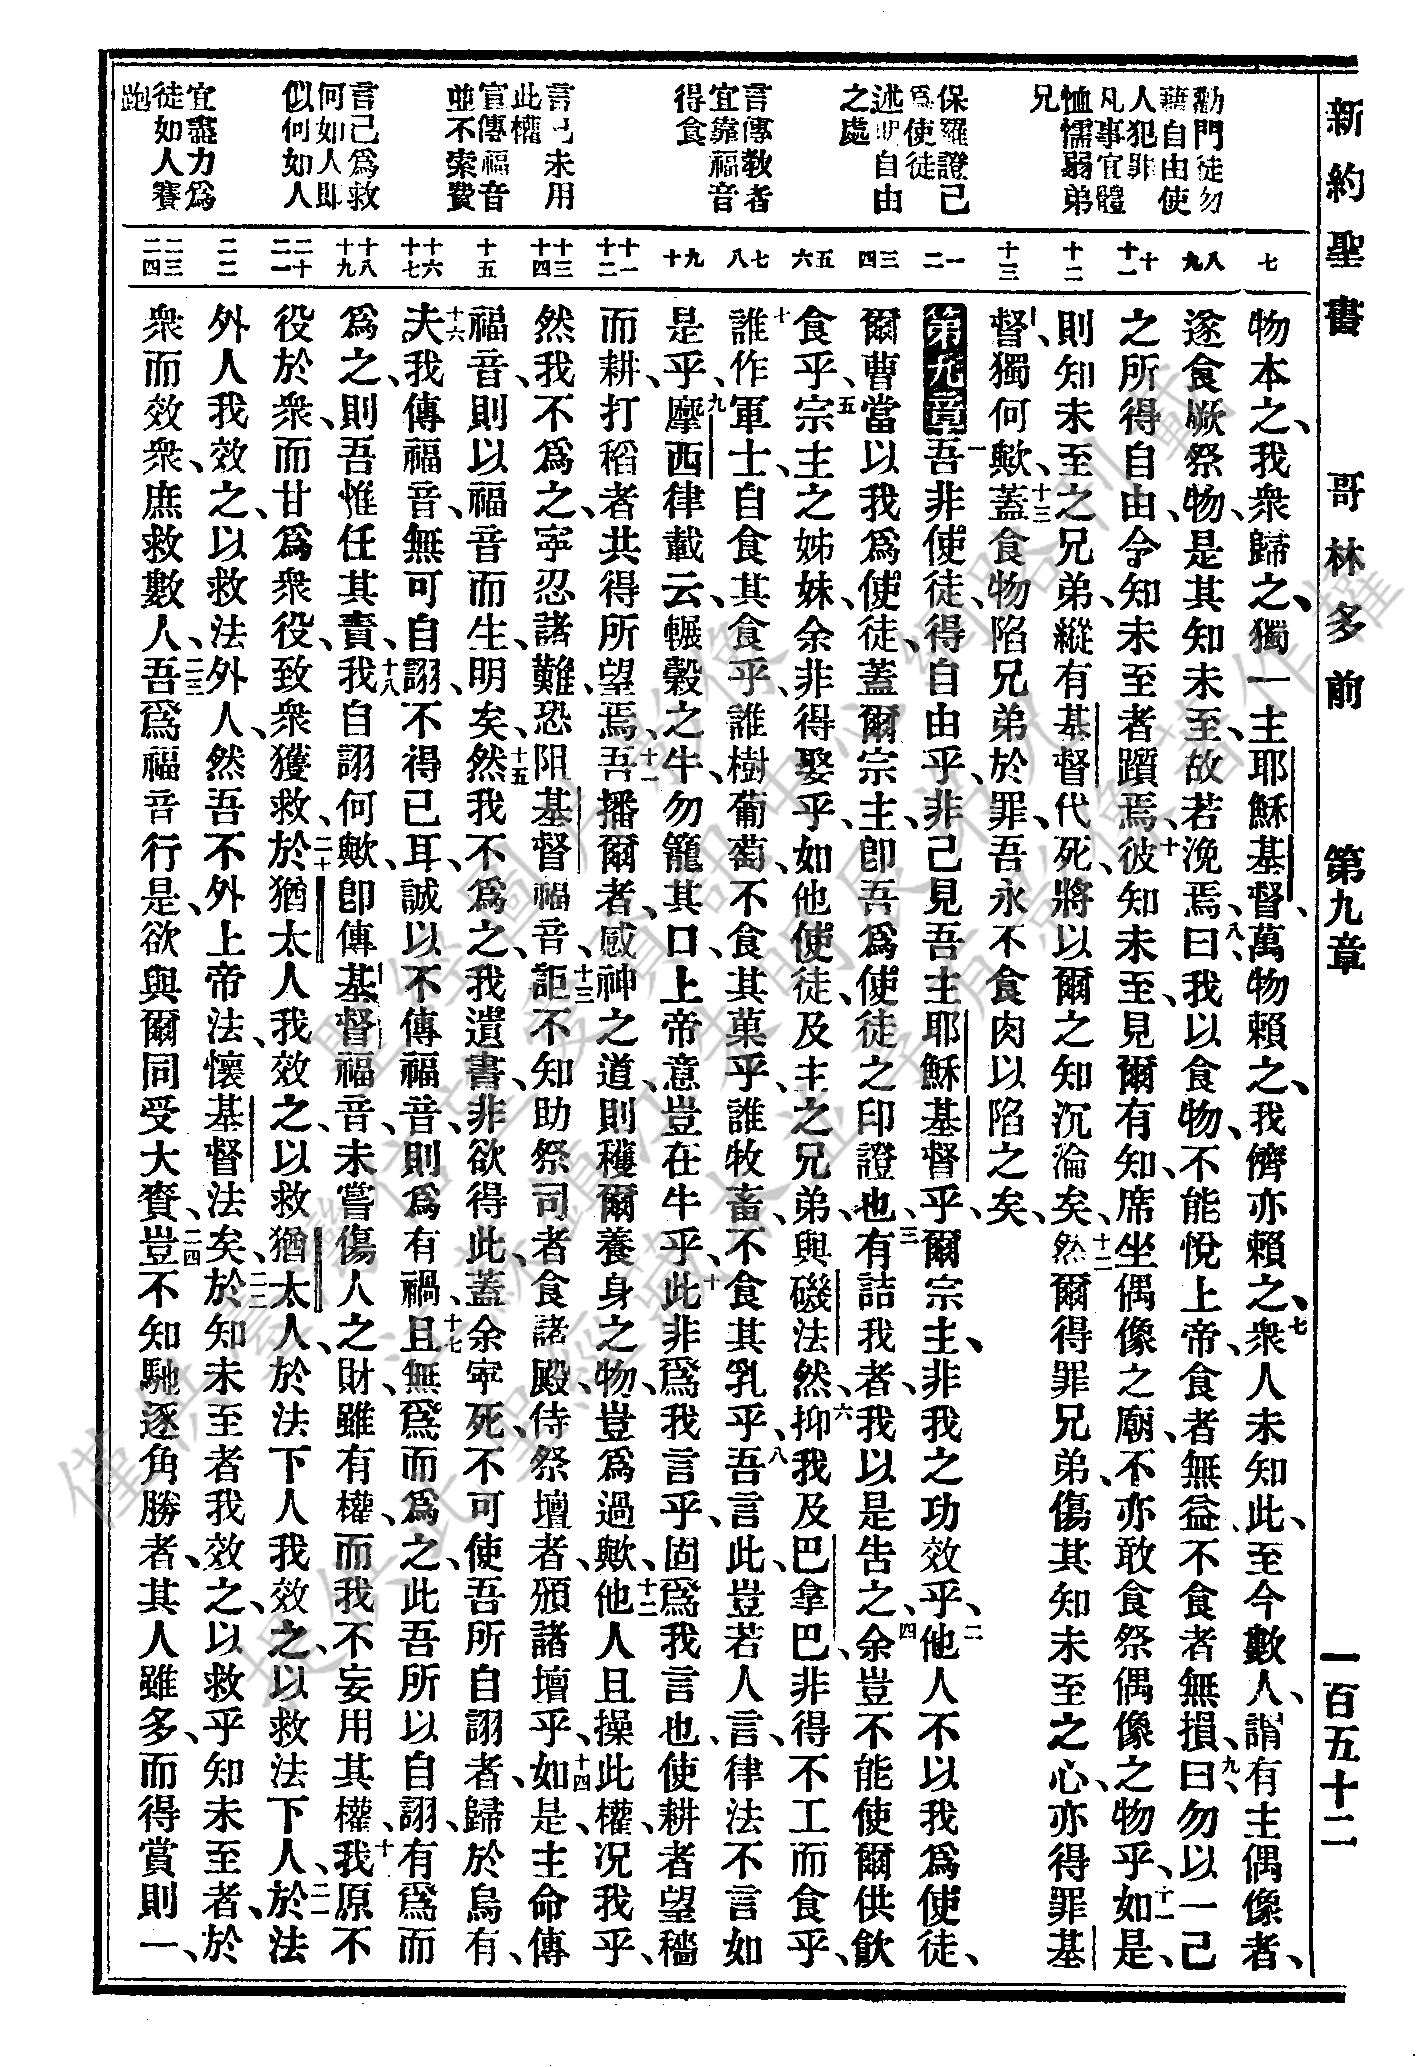 新約聖書 哥林多前 第九章 一百五十二
勸門徒勿
藉自由使
人犯罪
凡事宜體
恤懦弱弟
兄
保羅證己
爲使徒
述明自由
之處
言傳教者
宜靠福音
得食
言己未用
此權
宣傳福音
並不索費
言己爲救
何如人即
似何如人
宜盡力爲
徒如人賽
跑
七 八 九 十 十一 十二 十三 一 二 三 四 五 六 七 八 九 十 十一 十二 十三 十四 十五 十六 十七 十八 十九 二十 二一 二二 二三 二四
物本之、我衆歸之、獨一主耶穌基督、萬物賴之、我儕亦賴之、七衆人未知此、至今數人、謂有主偶像者、
遂食厥祭物、是其知未至、故若浼焉、八曰、我以食物、不能悅上帝、食者無益、不食者無損、九曰、勿以一己
之所得自由、令知未至者躓焉、十彼知未至、見爾有知、席坐偶像之廟、不亦敢食祭偶像之物乎、十一如是、
則知未至之兄弟、縱有基督代死、將以爾之知沉淪矣、十二然爾得罪兄弟、傷其知未至之心、亦得罪基
督、獨何歟、十三蓋食物陷兄弟於罪、吾永不食肉以陷之矣、
第九章 一吾非使徒、得自由乎、非己見吾主耶穌基督乎、爾宗主、非我之功效乎、二他人不以我爲使徒、
爾曹當以我爲使徒、蓋爾宗主、卽吾爲使徒之印證也、三有詰我者、我以是告之、四余豈不能使爾供飲
食乎、五宗主之姊妹、余非得娶乎、如他使徒、及主之兄弟、與磯法然、六抑我及巴拿巴、非得不工而食乎、
七誰作軍士、自食其食乎、誰樹葡萄、不食其菓乎、誰牧畜、不食其乳乎、八吾言此、豈若人言、律法不言如
是乎、九摩西律載云、輾穀之牛、勿籠其口、上帝意豈在牛乎、十此非爲我言乎、固爲我言也、使耕者望穡
而耕、打稻者共得所望焉、十一吾播爾者、感神之道、則穫爾養身之物、豈爲過歟、十二他人且操此權、况我乎、
然我不爲之、寧忍諸難、恐阻基督福音、十三詎不知助祭司者食諸殿、侍祭壇者、頒諸壇乎、十四如是、主命傳
福音、則以福音而生、明矣、十五然我不爲之、我遺書、非欲得此、蓋余寧死、不可使吾所自詡者、歸於烏有、
十六夫我傳福音、無可自詡、不得已耳、誠以不傳福音、則爲有禍、十七且無爲而爲之、此吾所以自詡、有爲而
爲之、則吾惟任其責、十八我自詡何歟、卽傳基督福音、未嘗傷人之財、雖有權、而我不妄用其權、十九我原不
役於衆、而甘爲衆役、致衆獲救、二十於猶太人、我效之、以救猶太人、於法下人、我效之、以救法下人、二一於法
外人、我效之、以救法外人、然吾不外上帝法、懷基督法矣、二二於知未至者、我效之、以救乎知未至者、於
衆而效衆、庶救數人、二三吾爲福音行是、欲與爾同受大賚、二四豈不知馳逐角勝者、其人雖多、而得賞則一、